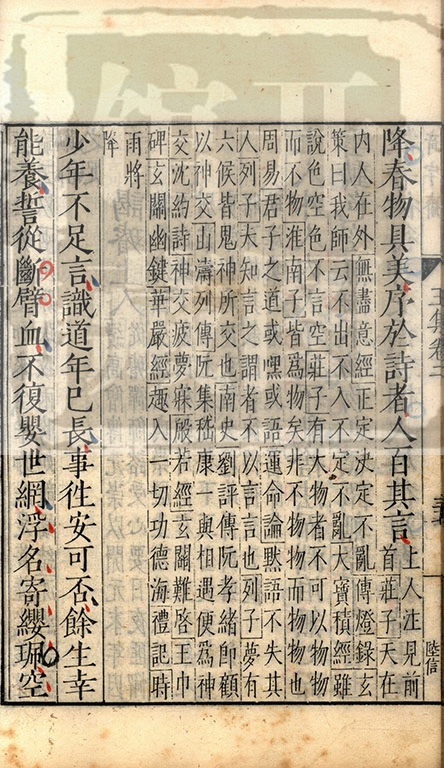 降春物具美序於詩者人百其言上人注見前
首莊子天在
內人在外無盡意經正定決定不亂傳燈錄玄
策曰我師云不出不入不定不亂大寶積經雖
說色空色不言空莊子有大物者不可以物物
而不物淮南子皆爲物矣非不物物而物物也
周易君子之道或嘿或語運命論黙語不失其
人列子大知言之謂者不以言言也列子夢有
六候皆鬼神所交也南史劉評傳阮孝緒卽顧
以神交山濤列傳阮集嵇康一與相遇便爲神
交沈約詩神交疲夢寐般若經玄關難啓王巾
碑玄關幽鍵華嚴經趣入一切功德海禮記時
雨將
降
少年不足言識道年已長事徃安可否餘生幸
能養誓從斷臂血不復嬰世網浮名寄纓珮空
陸信